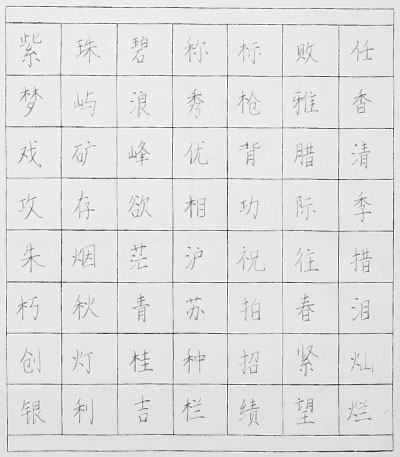 紫珠碧称标败任
梦屿浪秀枪雅香
戏矿峰优背腊清
攻存欲相功际季
朱烟茫沪祝往措
朽秋青苏拍春泪
创灯桂种招紧灿
银利吉栏绩望烂